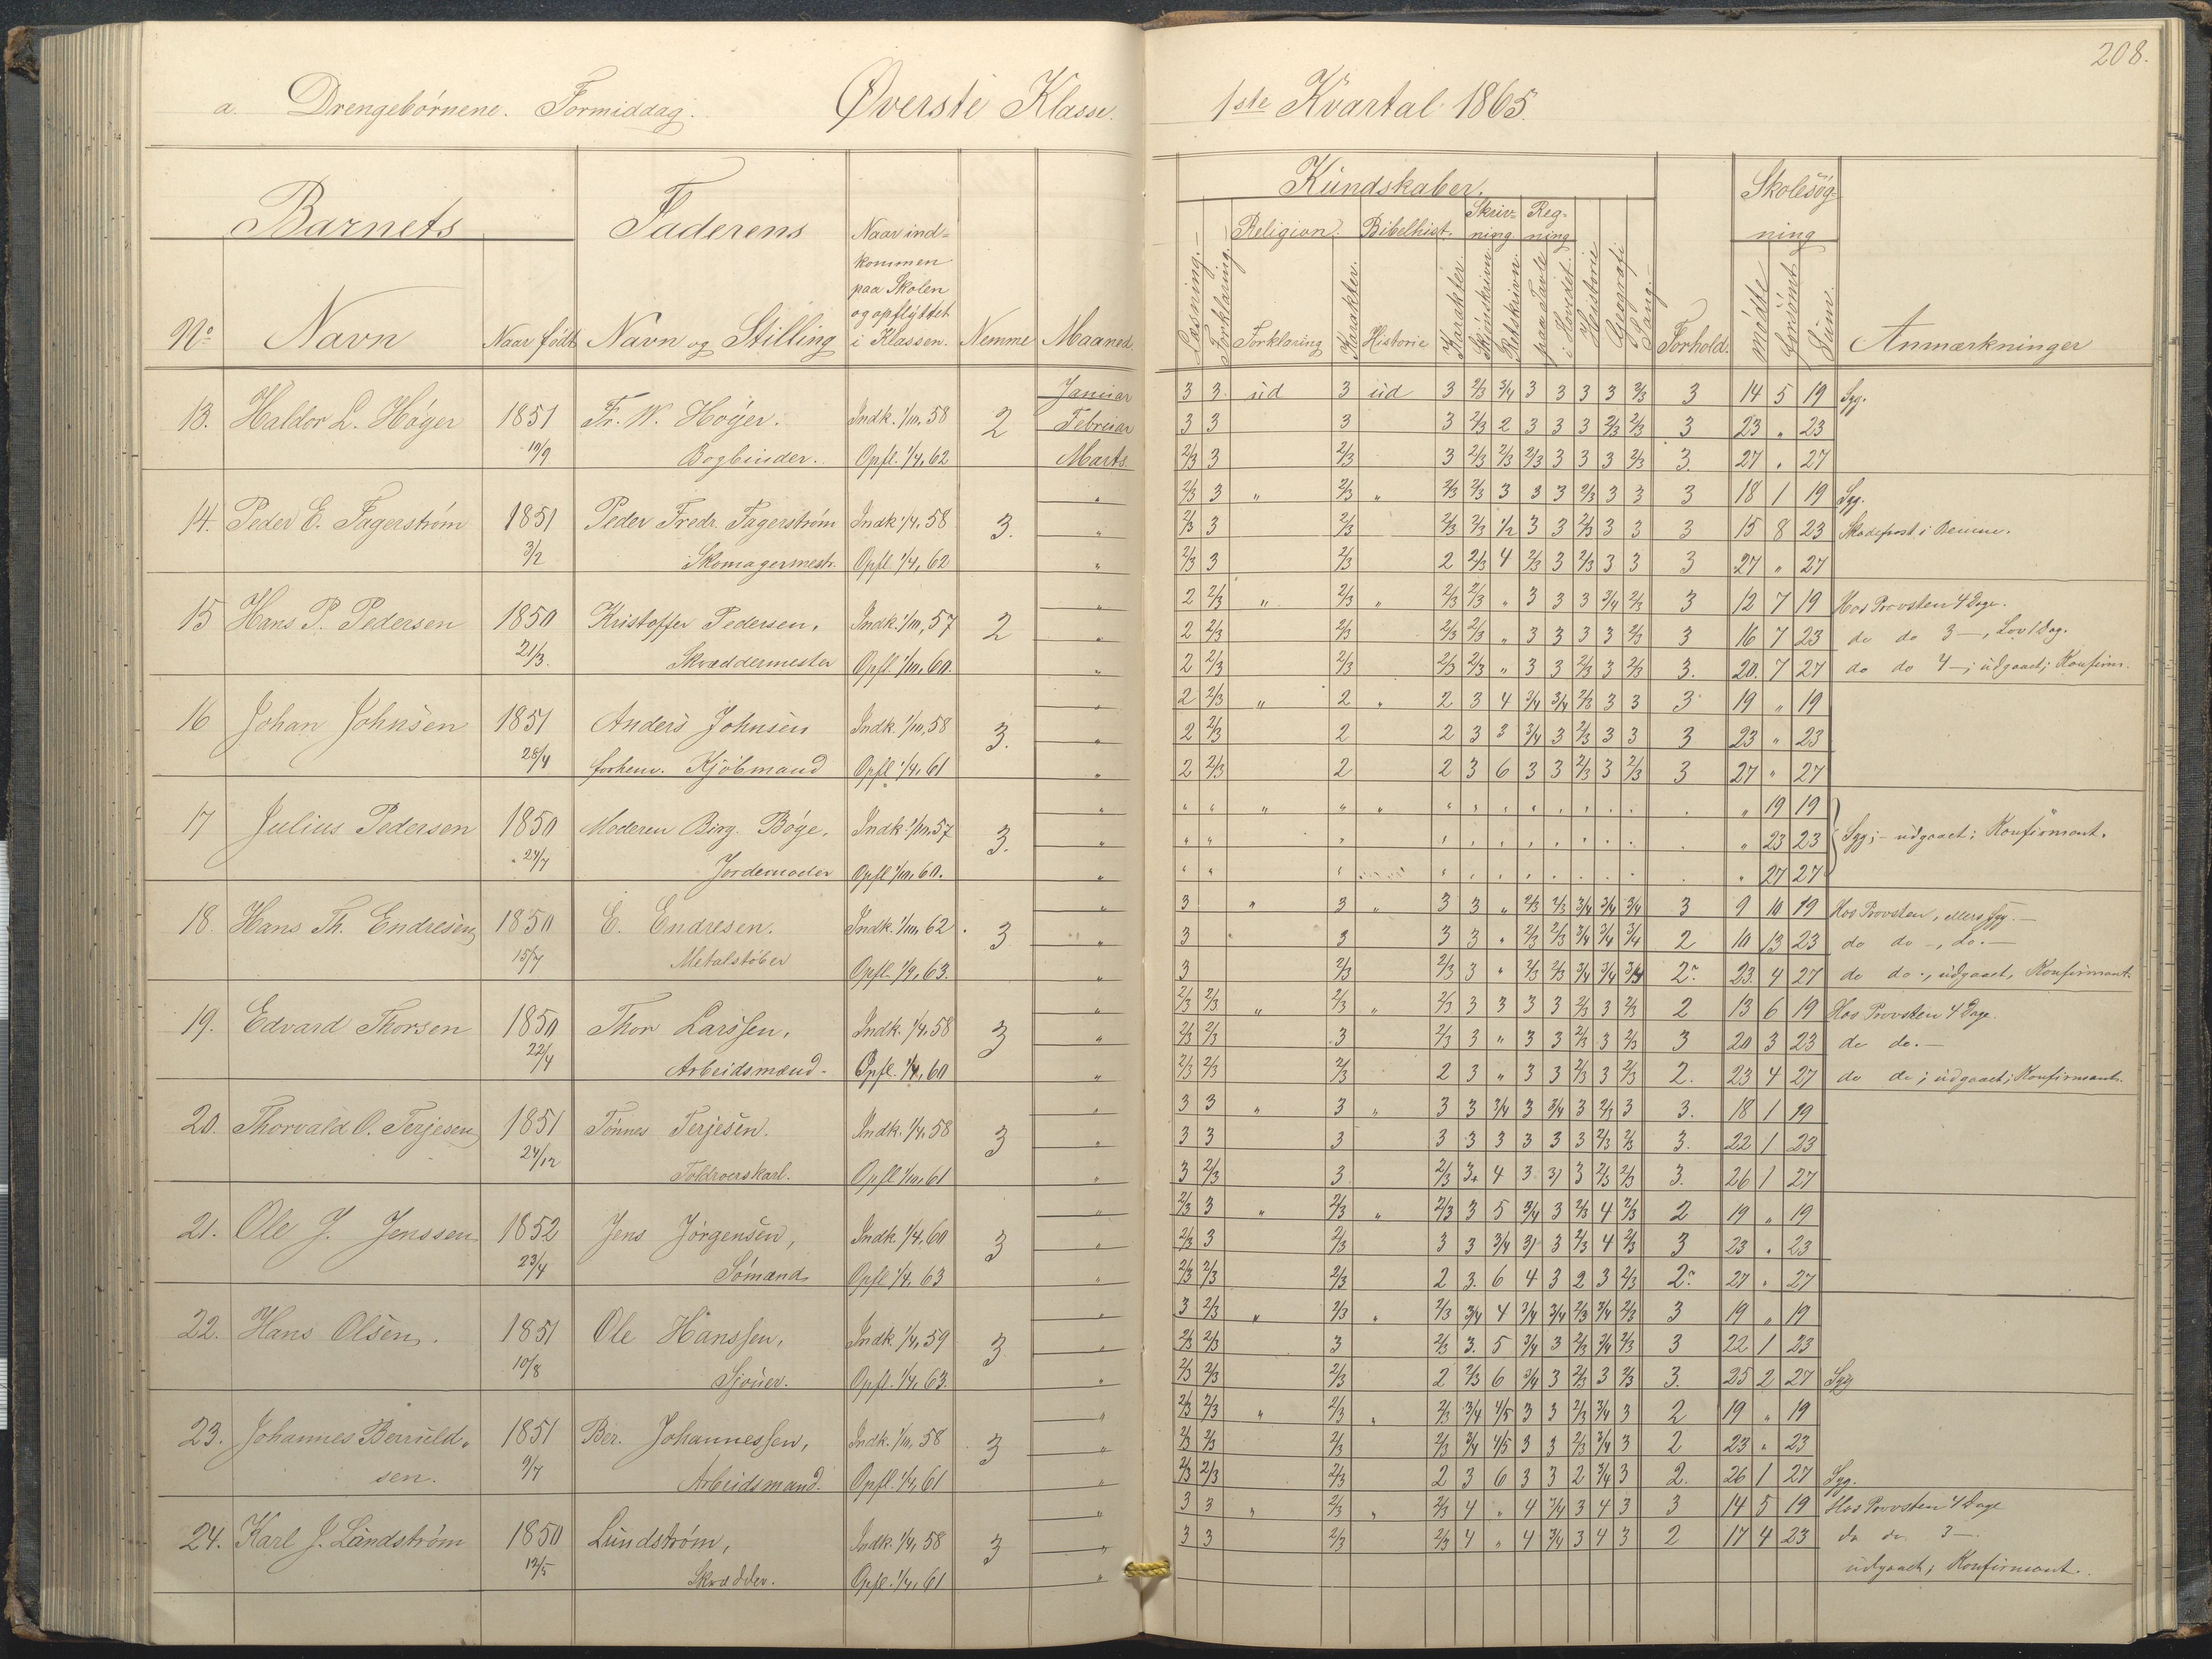 208.
a. Drengebørnene. Formiddag. Øverste Klasse. 1ste Kvartal 1865.
Barnets Faderens Naar ind-
kommen
paa Skolen
og opflyttet
i Klassen.
No Navn Naar født Navn og Stilling Nemme Maaned.
Kundskaber. Skolesøg-
ning
Religion. Bibelhist. Skriv-
ning Reg-
ning
Læsning. Forklaring. Forklaring Karakter. Historie Karakter. Skjönskrivn. Retskrivn. paa Tavle i Hovedet. Historie Geografi Sang. Forhold. mödte forsömt Sum. Anmærkninger
13. Haldor L. Høyer 1851 Fr. W. Høyer. Indk. 1/10, 58 2 Januar 3 3 ud 3 ud 3 2/3 3/4 3 3 3 3 2/3 3 14 5 19 Syg.
Februar 3 3 3 3 2/3 2 3 3 3 2/3 2/3 3 23 " 23
10/9 Bogbinder. Opfl. 1/4, 62 Marts 2/3 3 2/3 3 2/3 2/3 2/3 3 3 3 2/3 3. 27 " 27
14. Peder E. Fagerstrøm 1851 Peder Fredr. Fagerstrøm Indk. 1/4, 58 3. " 2/3 3 " 2/3 " 2/3 2/3 3 3 3 2/3 3 3 3 18 1 19 Syg.
" 2/3 3 2/3 2/3 2/3 1/2 3 3 2/3 3 3 3 15 8 23 i
3/2 Skomagermestr. Opfl. 1/4, 62 " 2/3 3 2/3 2 2/3 4 2/3 3 2/3 3 3 3 27 " 27
15 Hans P. Pedersen 1850 Kristoffer Pedersen, Indk. 1/10, 57 2 " 2 2/3 " 2/3 " 2/3 2/3 " 3 3 3 3/4 2/3 3 12 7 19 Hos Provsten 4 Dage.
" 2 2/3 2/3 2/3 2/3 " 3 3 3 3 2/3 3 16 7 23 do do 3 —, Lov 1 Dag.
21/3. Skræddermester Opfl. 1/10, 60. " 2 2/3 2/3 2/3 2/3 " 3 3 2/3 3 2/3 3. 20. 7 27 do do 4 —; udgaaet; Konfirm.
16 Johan Johnsen 1851 Anders Johnsen Indk. 1/10, 58 3. " 2 2/3 " 2 " 2 3 4 3/4 3/4 2/3 3 3 3 19 " 19
" 2 2/3 2 2 3 3 3/4 3 2/3 3 3 3 23 " 23
28/4 forhenv. Kjöbmand Opfl. 1/4, 61 " 2 2/3 2 2 3 6 3 3 2/3 3 2/3 3 27 " 27
17 Julius Pedersen 1850 Moderen Birg. Bøye, Indk. 1/10, 57 3. " " " " " " " " " " " " " " " " 19 19
" " " " " " " " " " " " " " " 23 23 Syg; - udgaaet; Konfirmant.
24/7 Jordemoder Opfl. 1/10, 60. " " " " " " " " " " " " " " " 27 27
18. Hans Th. Endresen 1850 E. Endresen. Indk. 1/10, 62 3 " 3 " 3 " 3 3 " 2/3 2/3 3/4 3/4 3/4 3 9 10 19 Hos Provsten, ellers Syg. —
" 3 3 3 3 " 2/3 2/3 3/4 3/4 3/4 2 10 13 23 do do —, do. —
15/7 Metalstöber Opfl. 1/9, 63. " 3 2/3 2/3 3 " 2/3 2/3 3/4 3/4 3/4 2. 23. 4 27 do do., udgaaet, Konfirmant.
19. Edvard Thorsen 1850 Thor Larssen, Indk. 1/4, 58 3 " 2/3 2/3 " 2/3 " 2/3 3 3 3 3 2/3 3 2/3 2 13 6 19 Hos Provsten 4 Dage.
" 2/3 2/3 3 2/3 3 " 3 3 2/3 3 2/3 3 20 3 23 do do. —
22/4 Arbeidsmand. Opfl. 1/4, 60 " 2/3 2/3 2/3 2 3 " 3 3 2/3 3 2/3 2. 23 4 27 do do; udgaaet; Konfirmant.
20. Thorvald O. Terjesen 1851 Tönnes Terjesen. Indk. 1/4, 58 3 " 3 3 " 3 " 3 3 3/4 3 3/4 3 2/3 3 3. 18 1 19
" 3 3 3 3 3 3 3 3 3 2/3 2/3 3. 22 1 23
24/12 Toldroerskarl. Opfl. 1/10, 61 " 3 2/3 3 2/3 3+ 4 3 3 3 2/3 2/3 3. 26 1 27
21. Ole J. Jenssen 1852 Jens Jörgensen, Indk. 1/4, 60 3 " 2/3 3 " 2/3 " 2/3 3 5 3/4 3 2/3 4 2/3 2 19 " 19
" 2/3 3 2/3 3 3 3/4 3 3 2/3 4 2/3 3 23 " 23
23/4 Sömand Opfl. 1/4, 63 " 2/3 2/3 2/3 2 3. 6 4 3 2 3 2/3 2. 27 " 27
22. Hans Olsen. 1851 Ole Hanssen, Indk. 1/4, 59 3 " 3 2/3 " 2/3 " 2/3 3/4 4 3/4 3/4 2/3 3/4 2/3 3 19 " 19
" 2/3 2/3 3 2/3 3. 5 3/4 3 2/3 3/4 2/3 3 22 1 23
10/8 Sjouer. Opfl. 1/4, 63. " 2/3 2/3 2/3 2 2/3 6 3/4 3 2/3 3 2/3 3. 25 2 27 Syg
23. Johannes Berruld- 1851 Ber. Johannessen, Indk. 1/10, 58 3 " 2/3 2/3 " 2/3 " 2/3 3/4 4/5 3 3 2/3 3/4 3 2 19 " 19
" 2/3 2/3 2/3 2/3 3/4 4/5 3 3 2/3 3/4 3 2 23 " 23
sen. 9/7 Arbeidsmand. Opfl. 1/4, 61 " 2/3 2/3 2/3 2 3 6 3 3 2 3/4 3 2. 26 1 27 Syg.
24. Karl J. Lundström 1850 Lundström, Indk. 1/4, 58 3 " 3 3 " 2/3 " 2/3 4 " 4 3/4 3 4 3 3 14 5 19 Hos Provsten 4 Dage
" 3 3 2/3 2/3 4 " 4 3/4 3 4 3 2 17 4 23 do do 3 —.
12/5 Skrædder. Opfl. 1/4, 61 " udgaaet; Konfirmant.